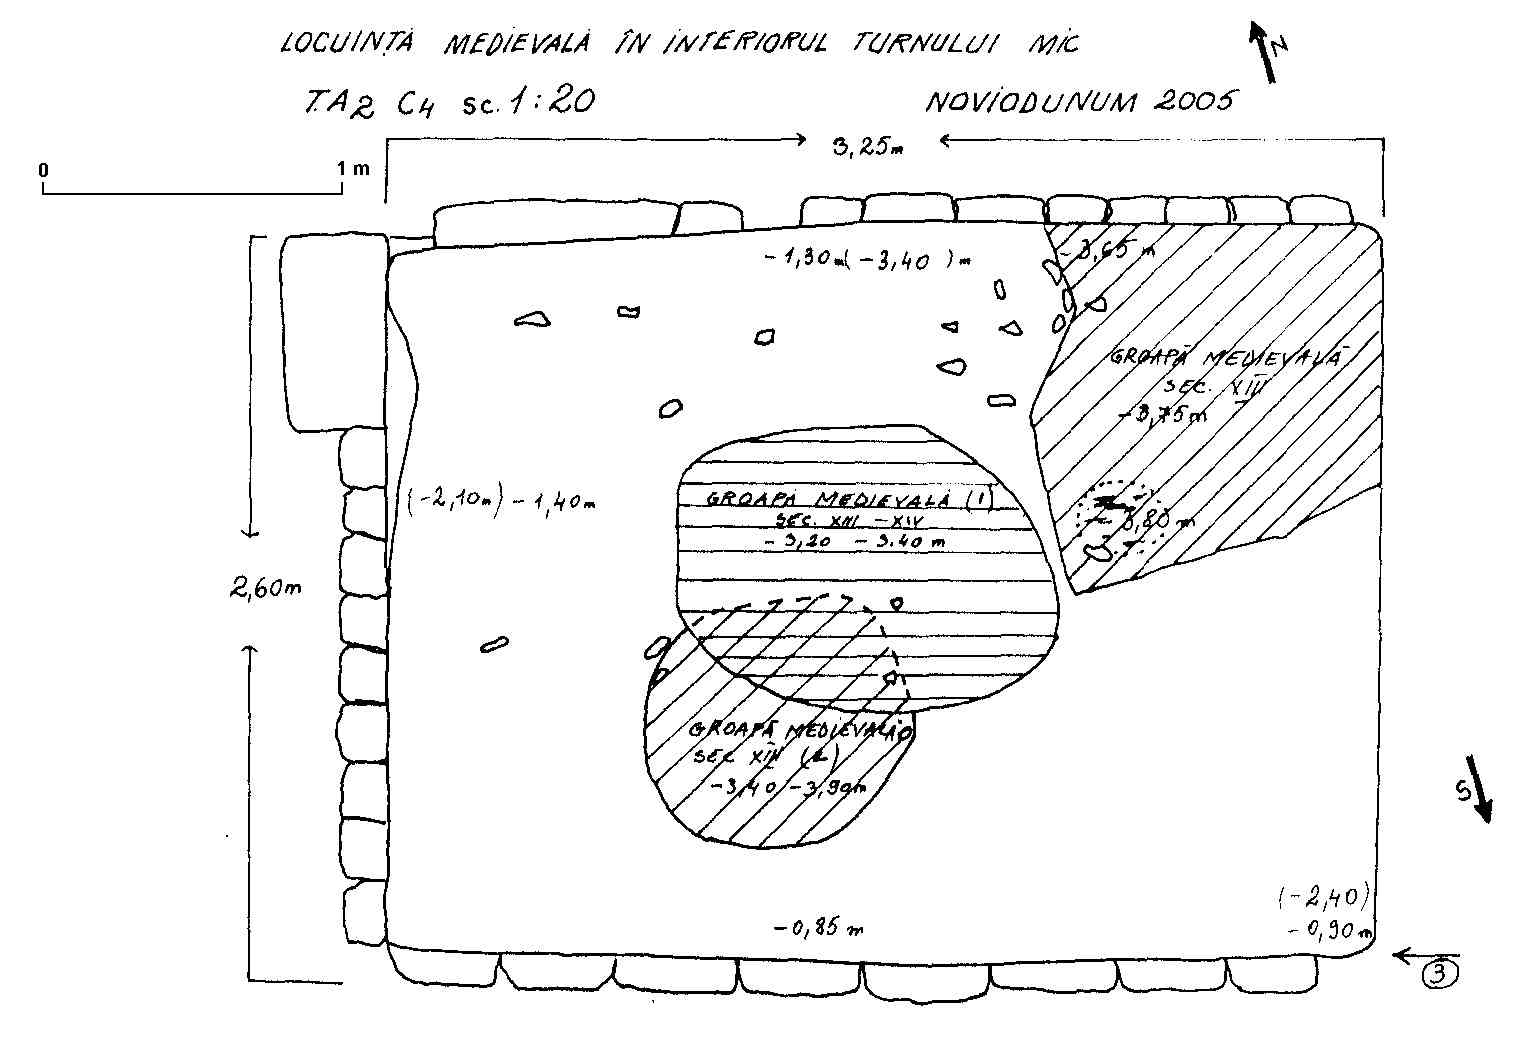 LOCUINȚĂ MEDIEVALĂ ÎN INTERIORUL TURNULUI MIC
N
T.A2 C4 sc. 1:20
NOVIODUNUM 2005
3,25m
0 1 m
-1,30m(-3,40)m
-3,65 m
GROAPĂ MEDIEVALĂ
SEC. XIII
-3,75m
(-2,10m) -1,40m
GROAPĂ MEDIEVALĂ (1)
SEC. XIII - XIV
-3,20 -3.40 m
-3,80 m
2,60m
GROAPĂ MEDIEVALĂ
SEC XIII (2)
-3,40 -3,90m
S
(-2,40)
-0,85 m
-0,90m
3